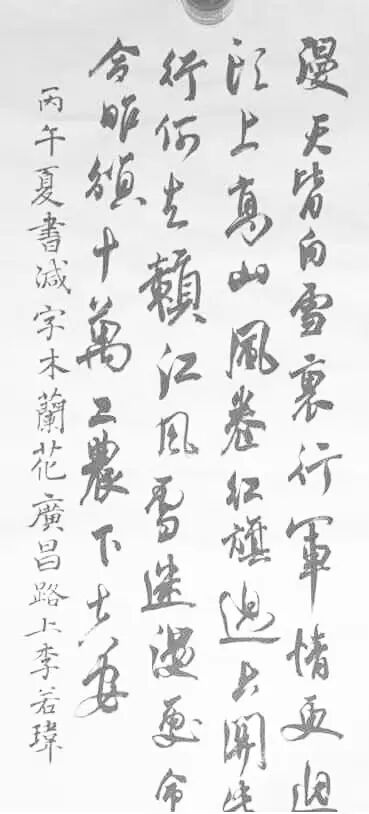 漫天皆白雪裏行軍情更迫
頭上高山風卷紅旗過大關此
行何去贛江風雪迷漫處命
令昨頒十萬工農下吉安
丙午夏書減字木蘭花廣昌路上李若瑋